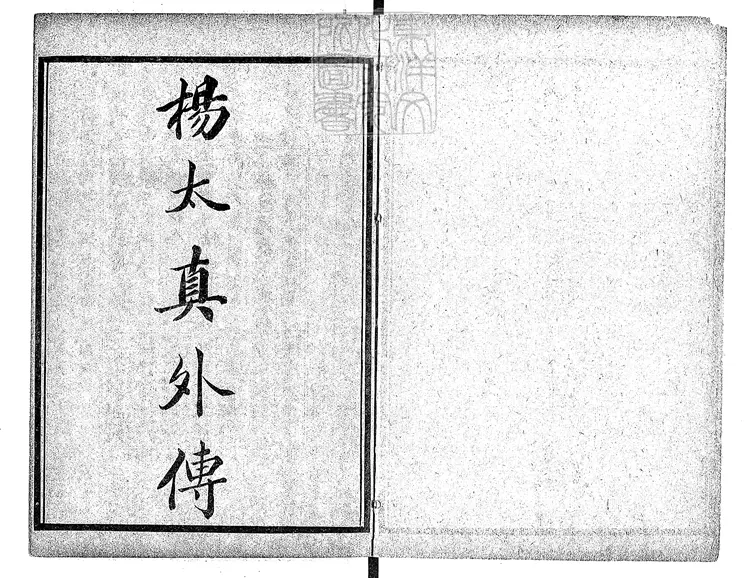 楊太真外傳